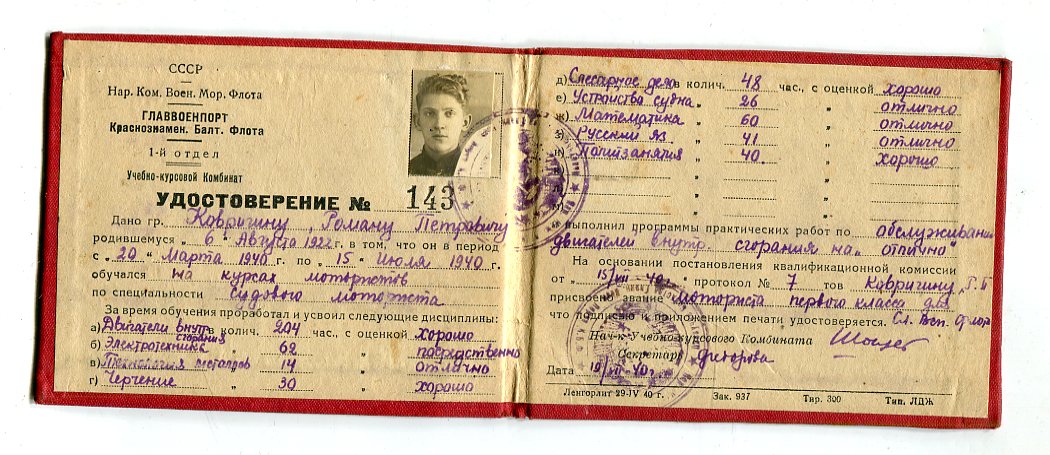 СССР
Нар. Ком. Воен. Мор. Флота
ГЛАВВОЕНПОРТ
Краснознамен. Балт. Флота
1-й отдел
Учебно-курсовой Комбинат
УДОСТОВЕРЕНИЕ № 143
Дано гр. Ковригину, Роману Петровичу
родившемуся „ 6 " Августа 1922 г. в том, что он в период
с „ 20 " Марта 1940 г. по „ 15 " Июля 1940 г.
обучался на курсах мотористов
по специальности судового моториста
За время обучения проработал и усвоил следующие дисциплины:
а) Двигатели внутр. сгорания в колич. 204 час., с оценкой хорошо
б) Электротехника „ 62 „ посредственно
в) Технология металлов „ 14 „ отлично
г) Черчение „ 30 „ хорошо
д) Слесарное дело в колич. 48 час., с оценкой хорошо
е) Устройства судна „ 26 „ отлично
ж) Математика „ 60 „ отлично
з) Русский яз „ 41 „ отлично
и) Политзанятия „ 40 „ хорошо
выполнил программы практических работ по обслуживанию
двигателей внутр. сгорания на „отлично"
На основании постановления квалификационной комиссии
от „ 15/VII - 40 г. протокол № 7 тов Ковригину Р. П
присвоено звание моториста первого класса для
что подписью и приложением печати удостоверяется.
Нач-к Учебно-курсового Комбината
Секретарь
Дата 19/VII - 40 г.
Ленгорлит 29-IV 40 г. Зак. 937 Тир. 300 Тип. ЛДЖ